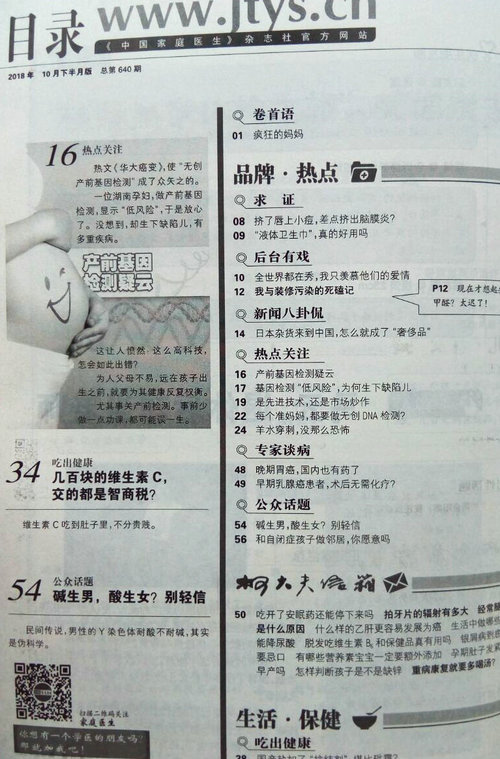 目录
www.jtys.cn
《中国家庭医生》杂志社官方网站
2018 年 10 月下半月版 总第 640 期
16 热点关注
热文《华大癌变》,使“无创
产前基因检测”成了众矢之的。
一位湖南孕妇,做产前基因
检测,显示“低风险”,于是放心
了。没想到,却生下缺陷儿,有
多重疾病。
产前基因
检测疑云
这让人愤然:这么高科技,
怎会如此出错?
为人父母不易,远在孩子出
生之前,就要为其健康反复权衡。
尤其事关产前检测。事前少
做一点功课,都可能误一生。
34 吃出健康
几百块的维生素 C,
交的都是智商税?
维生素 C 吃到肚子里,不分贵贱。
54 公众话题
碱生男,酸生女?别轻信
民间传说,男性的 Y 染色体耐酸不耐碱,其实
是伪科学。
扫描二维码关注
家庭医生
你想有一个学医的朋友吗?
那就加我吧!
卷首语
01 疯狂的妈妈
品牌·热点
求 证
08 挤了唇上小痘,差点挤出脑膜炎?
09 “液体卫生巾”,真的好用吗
后台有戏
10 全世界都在秀,我只羡慕他们的爱情
12 我与装修污染的死磕记
P12 现在才想起
甲醛?太迟了!
新闻八卦侃
14 日本杂货来到中国,怎么就成了“奢侈品”
热点关注
16 产前基因检测疑云
17 基因检测“低风险”,为何生下缺陷儿
19 是先进技术,还是市场炒作
22 每个准妈妈,都要做无创 DNA 检测?
24 羊水穿刺,没那么恐怖
专家谈病
48 晚期胃癌,国内也有药了
49 早期乳腺癌患者,术后无需化疗?
公众话题
54 碱生男,酸生女?别轻信
56 和自闭症孩子做邻居,你愿意吗
柯大夫信箱
50 吃开了安眠药还能停下来吗 拍牙片的辐射有多大 经常
是什么原因 什么样的乙肝更容易发展为癌 生活中做哪些
能降尿酸 脱发吃维生素 B₆ 和保健品真有用吗 银屑病
要忌口 有哪些营养素宝宝一定要额外添加 孕期肚子发紧
早产吗 怎样判断孩子是不是缺锌 重病康复就要多喝汤?
生活·保健
吃出健康